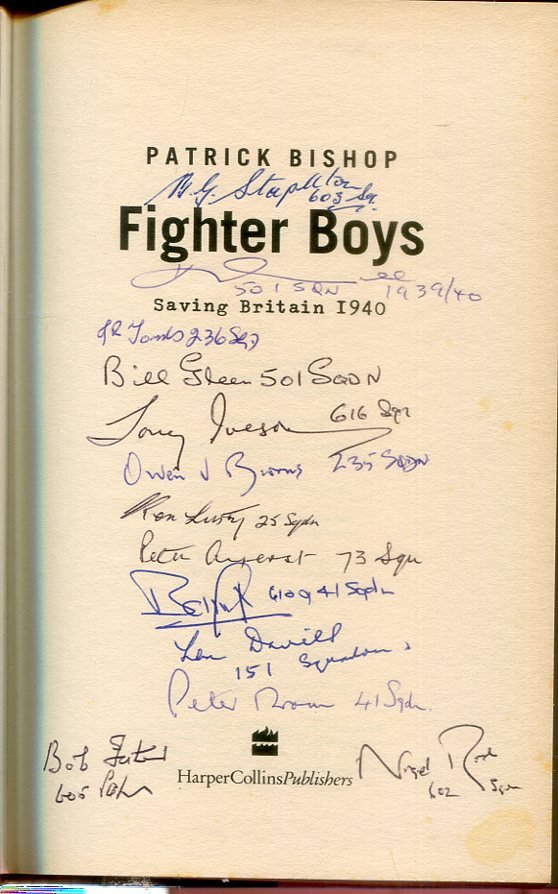 PATRICK BISHOP
B.G. Stapleton
603 Sq.
Fighter Boys
501 SQN 1939/40
Saving Britain 1940
236 Sqd
Bill Green 501 SQDN
Tony Iveson 616 Sqn
Owen V Burns 235 SQDN
Ken Lusty 25 Sqdn
Peter Ayerst 73 Sqn
610 & 41 Sqdn
Len Davies
151 Squadron
Peter Brown 41 Sqdn.
Bob Foster
605
Nigel Rose
602 Sqn
HarperCollinsPublishers